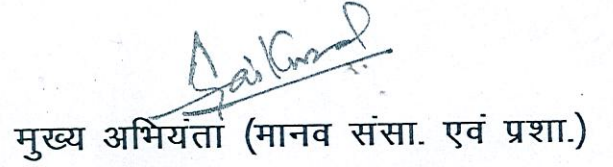 मुख्य अभियंता (मानव संसा. एवं प्रशा.)